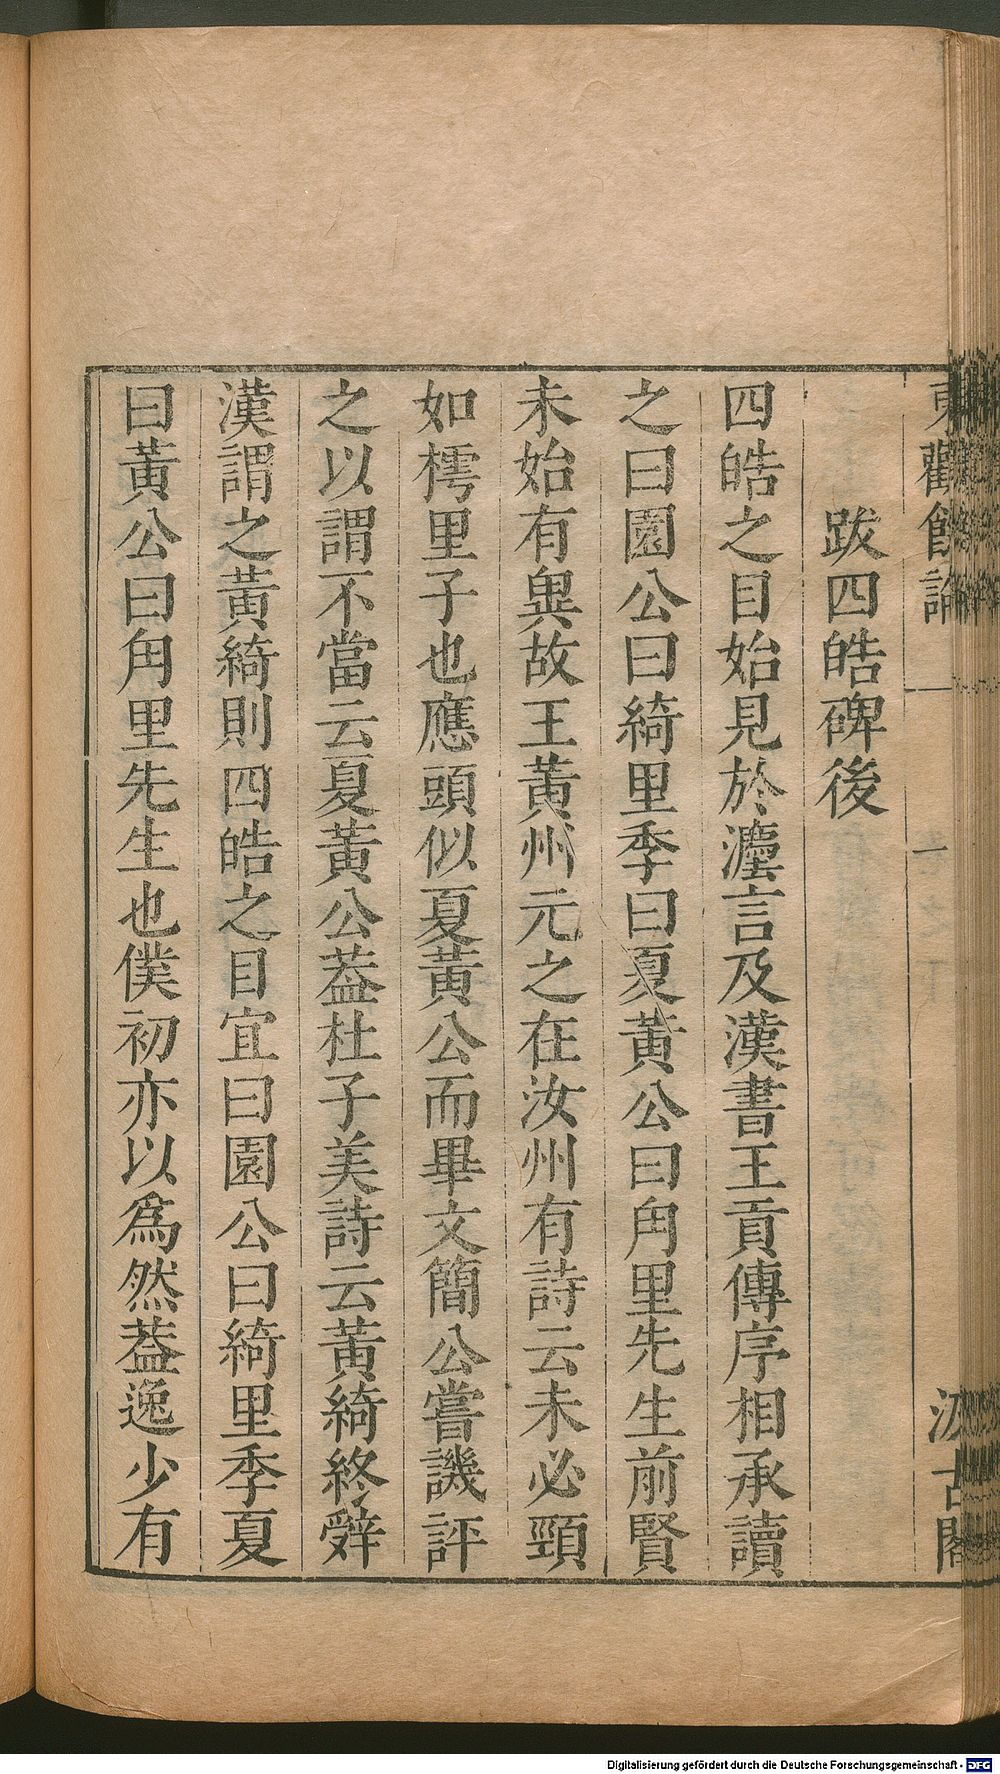 東觀餘論 一 汲古閣
跋四皓碑後
四皓之目始見於灋言及漢書王貢傳序相承讀
之曰園公曰綺里季曰夏黃公曰甪里先生前賢
未始有異故王黃州元之在汝州有詩云未必頸
如樗里子也應頭似夏黃公而畢文簡公嘗譏評
之以謂不當云夏黃公葢杜子美詩云黃綺終辭
漢謂之黃綺則四皓之目宜曰園公曰綺里季夏
曰黃公曰甪里先生也僕初亦以爲然葢逸少有
Digitalisierung gefördert durch die Deutsche Forschungsgemeinschaft - DFG